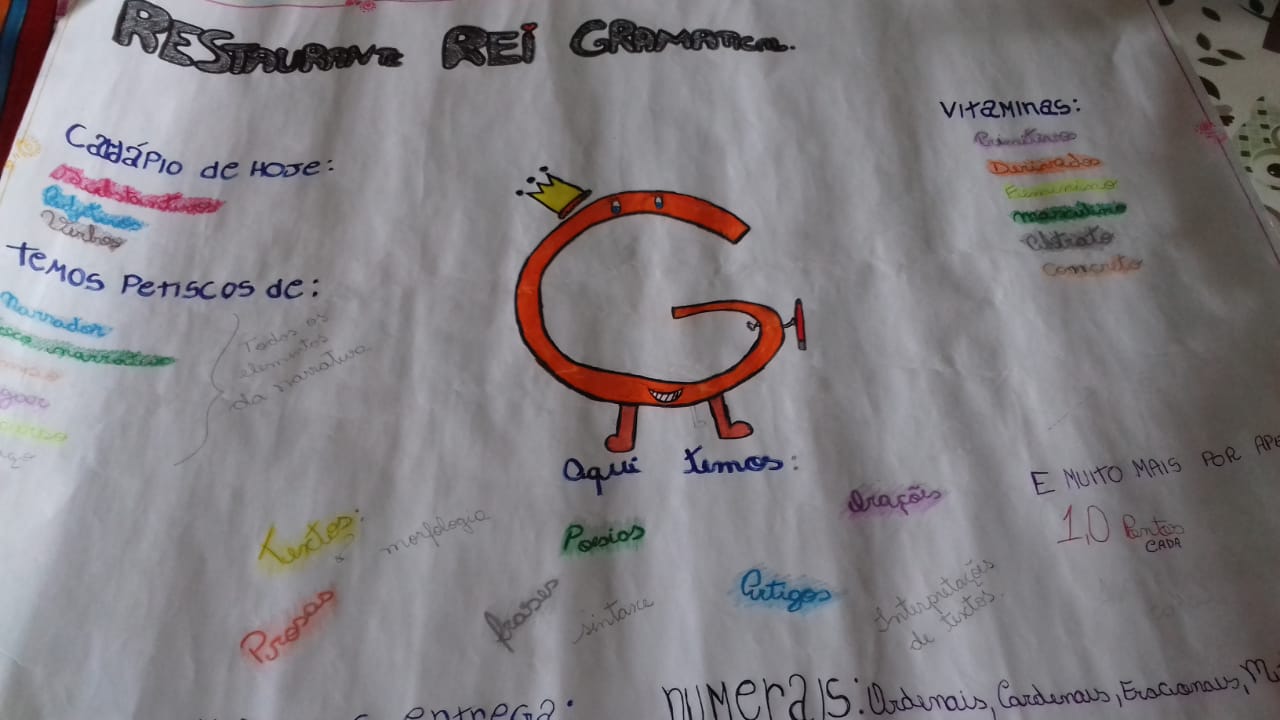 RESTAURANTE REI GRAMATICAL.
Cardápio de HOJE:
Substantivos
Adjetivos
Verbos
Temos Petiscos de:
Narrador
Todos os
elementos
da narrativa
Vitaminas:
Primitivos
Derivados
Feminino
masculino
Abstrato
Concreto
Aqui temos:
Textos:
morfologia
Poesias
Orações
Prosas
frases
sintaxe
Artigos
Interpretações
de textos.
E MUITO MAIS POR
1,0 Pontos
CADA
entrega:
numerais: Ordinais, Cardenais, Fracionais,